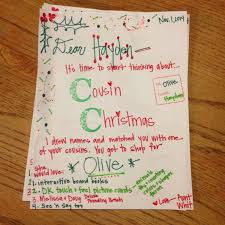 Nov. 1, 2014
Dear Hayden—
It's time to start thinking about...
Cousin
Christmas
I drew names and matched you with one
of your cousins. You get to shop for
Olive
She would love:
1. interactive board books
2. DK touch + feel picture cards
3. Melissa + Doug
4. See n Say too
Love - Aunt